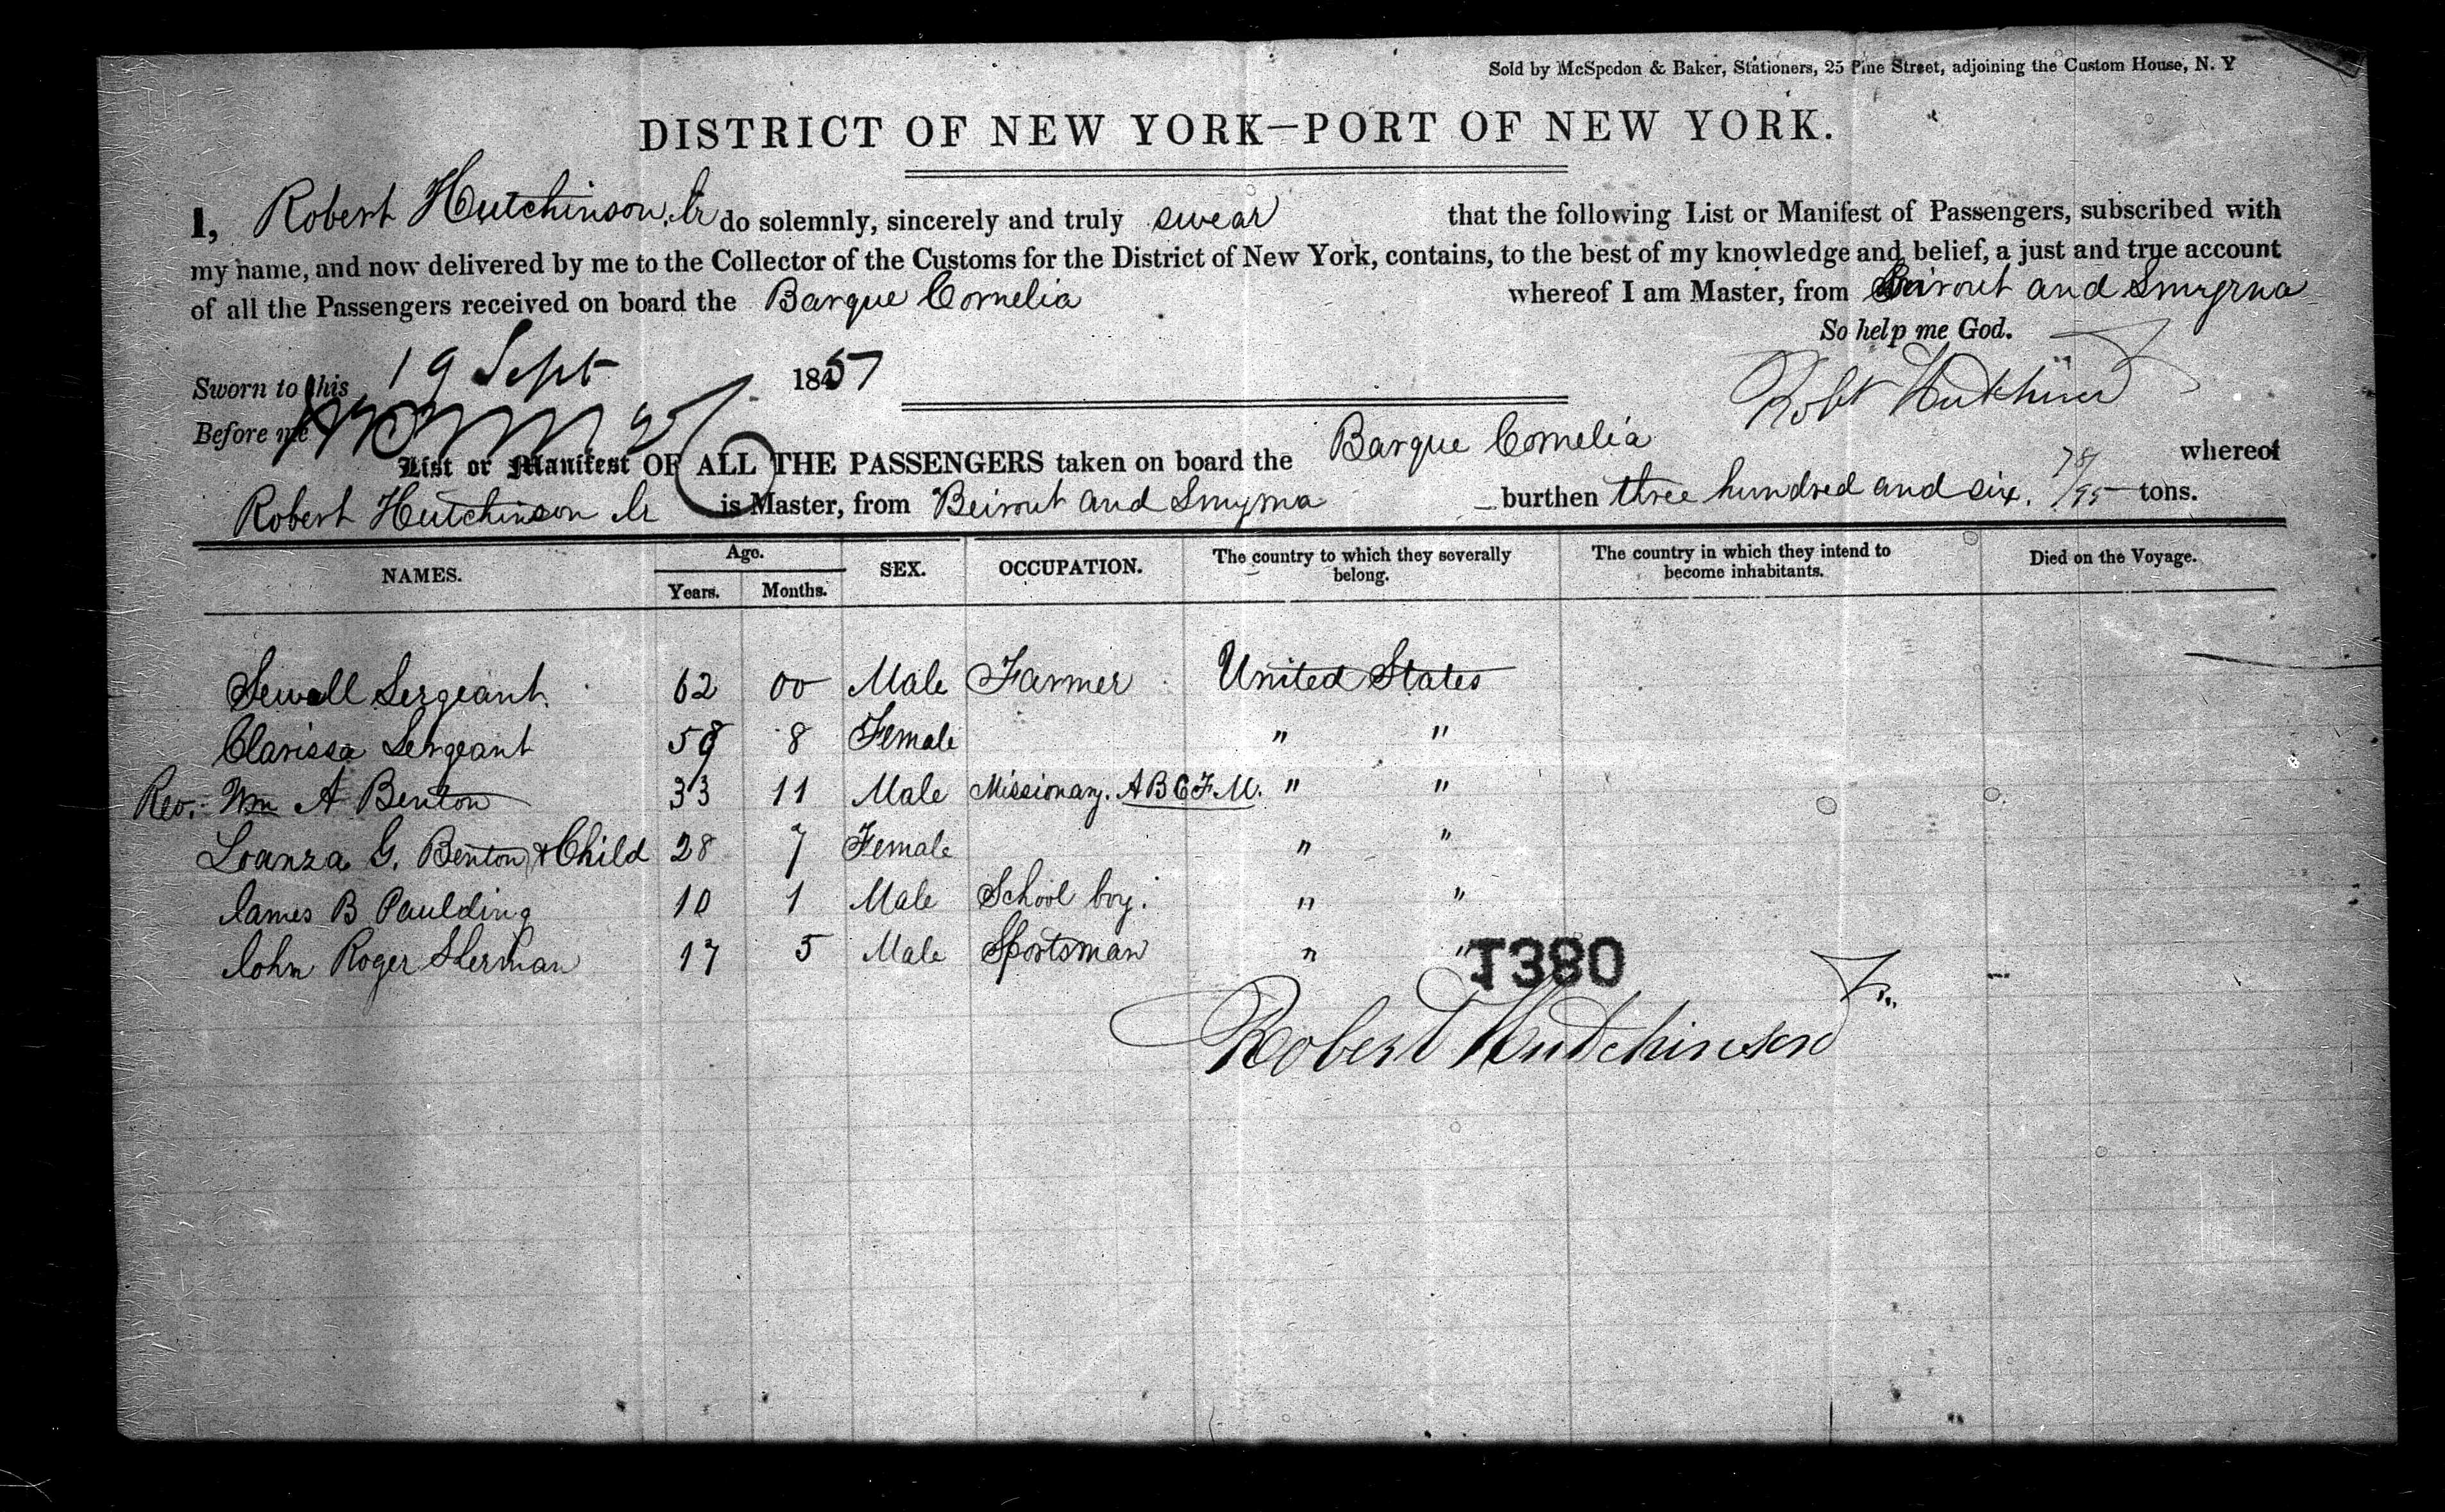 Sold by McSpedon & Baker, Stationers, 25 Pine Street, adjoining the Custom House, N. Y
DISTRICT OF NEW YORK—PORT OF NEW YORK.
I, Robert Hutchinson, Jr do solemnly, sincerely and truly swear that the following List or Manifest of Passengers, subscribed with
my name, and now delivered by me to the Collector of the Customs for the District of New York, contains, to the best of my knowledge and belief, a just and true account
of all the Passengers received on board the Barque Cornelia whereof I am Master, from Beirout and Smyrna
So help me God.
Sworn to this 19 Sept 1857
Robt Hutchinson
Before me
List or Manifest OF ALL THE PASSENGERS taken on board the Barque Cornelia whereof
Robert Hutchinson Jr is Master, from Beirout and Smyrna burthen three hundred and six. 78/95 tons.
NAMES. Age. Years. Months. SEX. OCCUPATION. The country to which they severally belong. The country in which they intend to become inhabitants. Died on the Voyage.
Sewall Sergeant. 62 00 Male Farmer United States
Clarissa Sergeant 58 8 Female " "
Rev. Wm A Benton 33 11 Male Missionary. A B C F M. " "
Loanza G. Benton & Child 28 7 Female " "
James B Paulding 10 1 Male School boy. " "
John Roger Sherman 17 5 Male Sportsman " "
1380
Robert Hutchinson Jr.